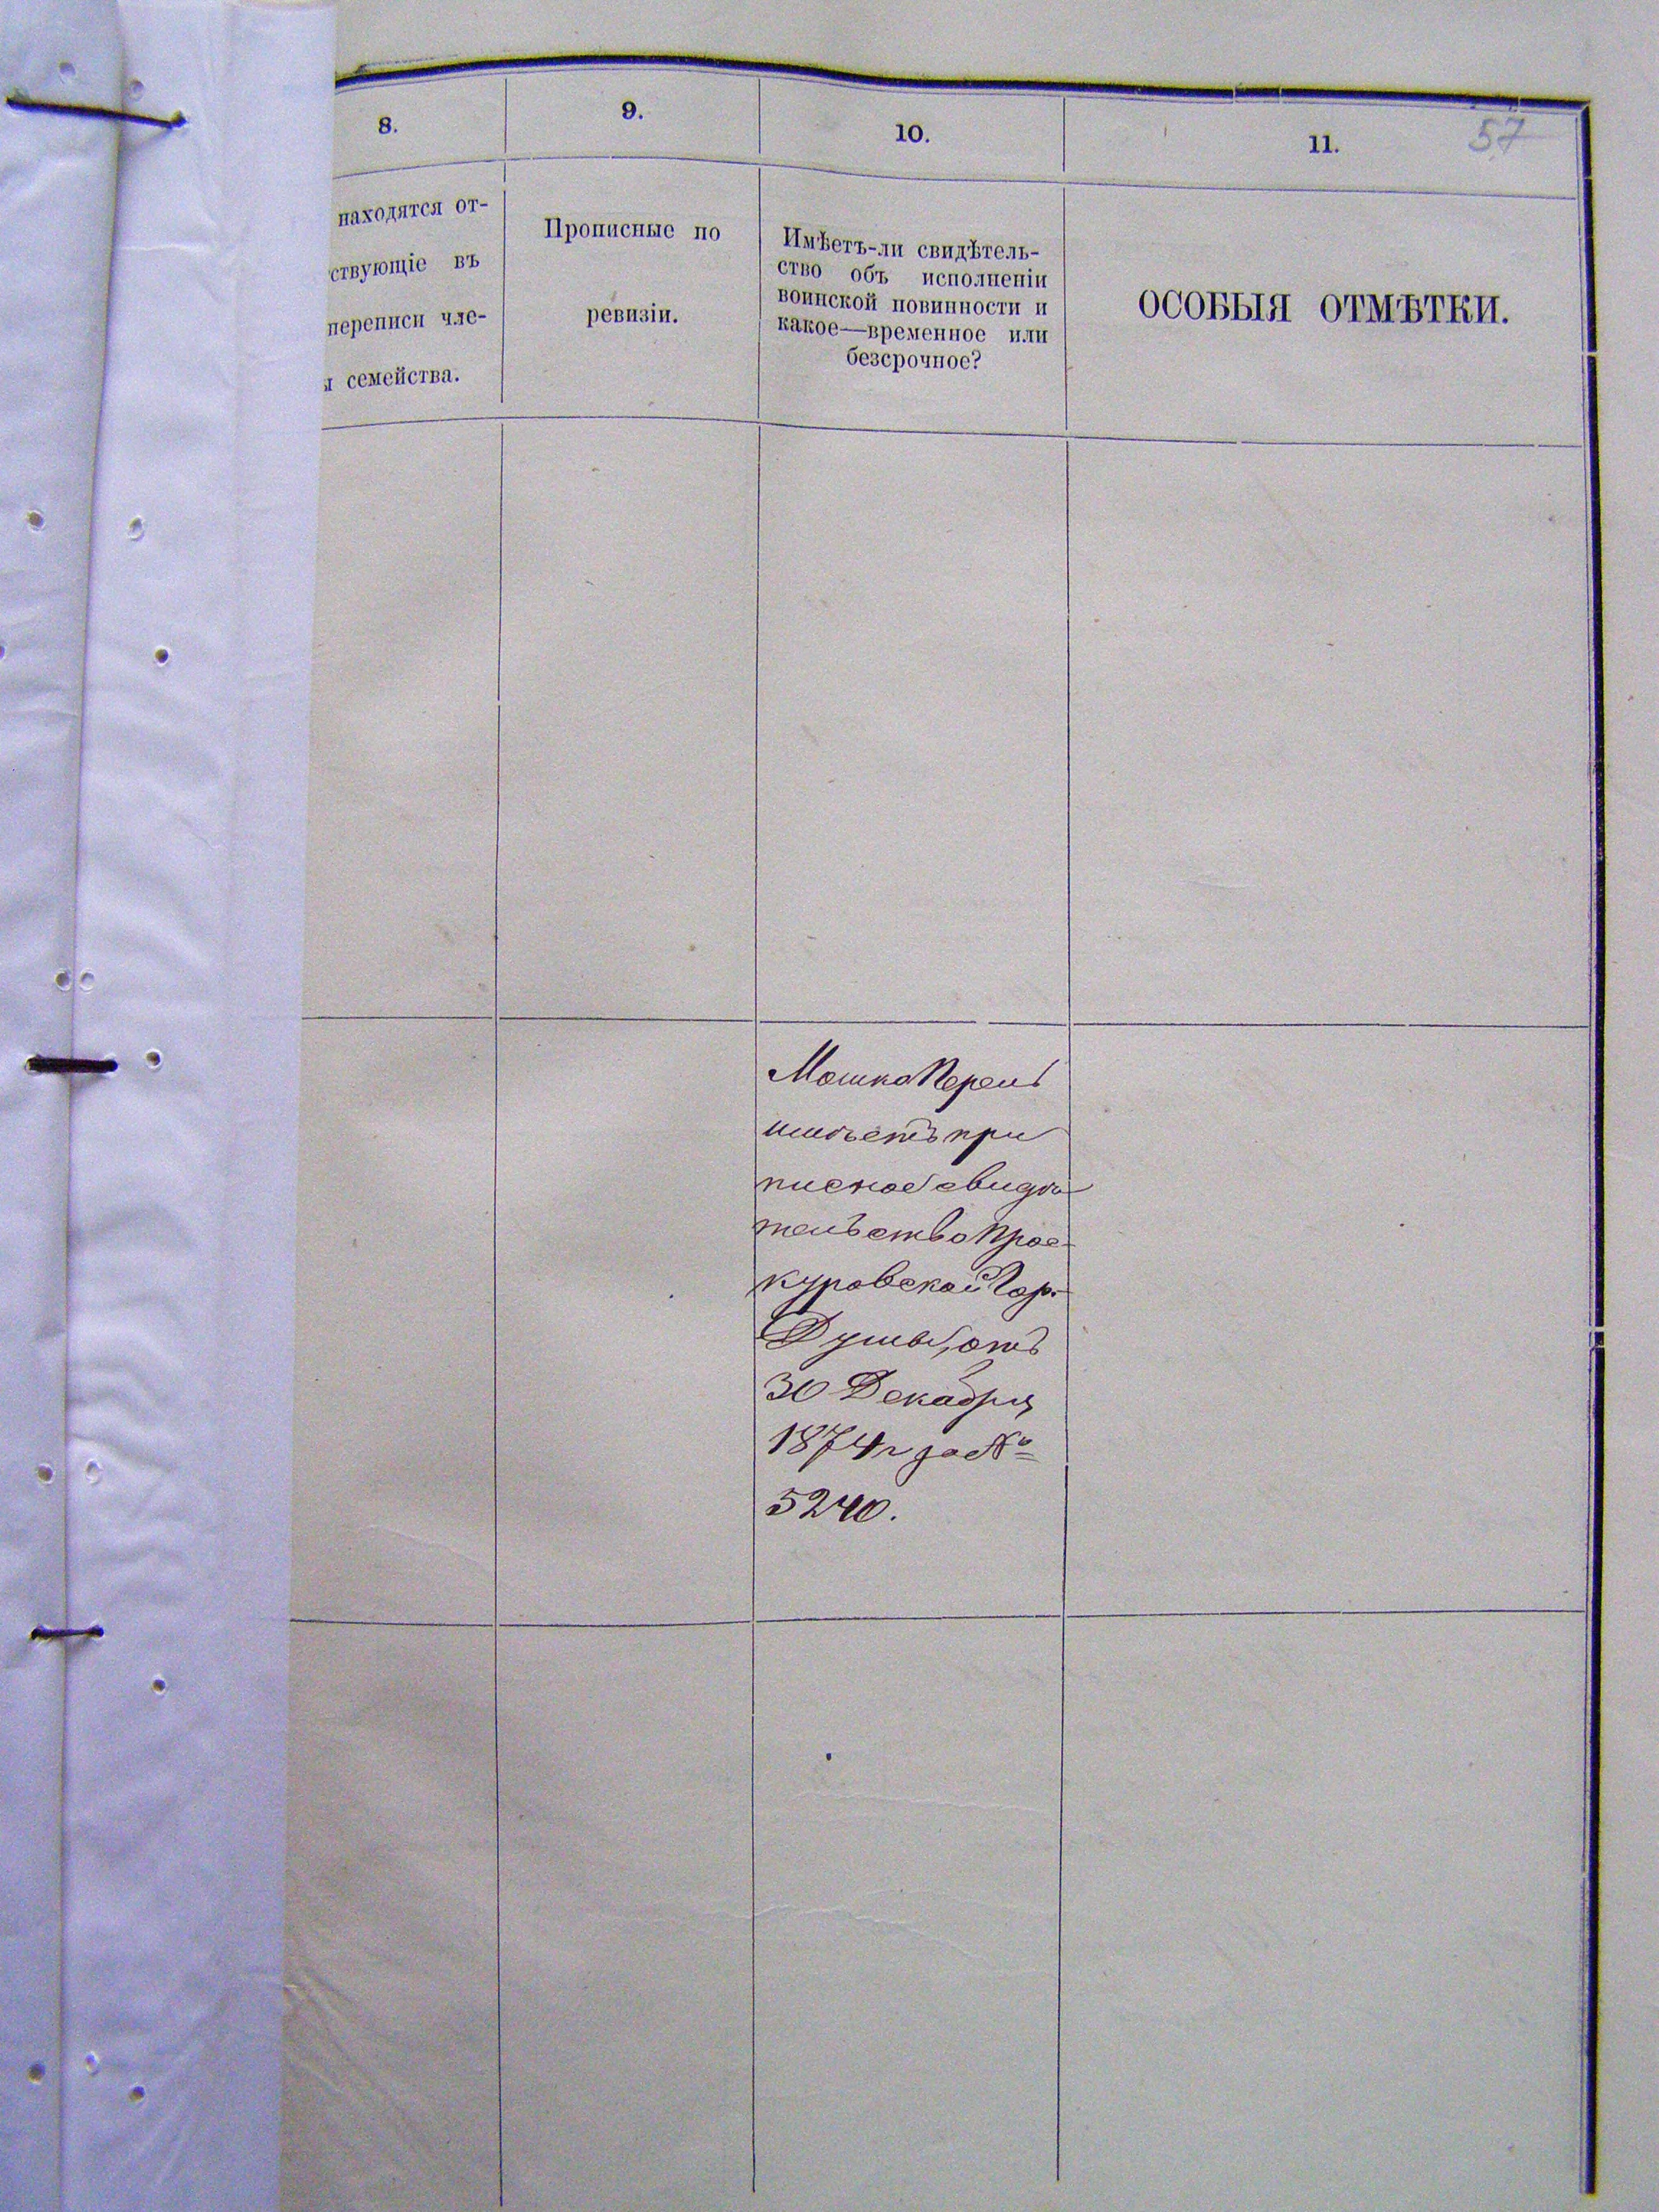 57
8.
9.
10.
11.
находятся от-
ствующіе въ
переписи чле-
ы семейства.
Прописные по
ревизіи.
Имѣетъ-ли свидѣтель-
ство объ исполненіи
воинской повинности и
какое—временное или
безсрочное?
ОСОБЫЯ ОТМѢТКИ.
Мошко
имѣетъ при
писное свидѣ
тельство Прос-
куровской Гор.
Думы, отъ
30 Декабря
1874 г за №
5240.